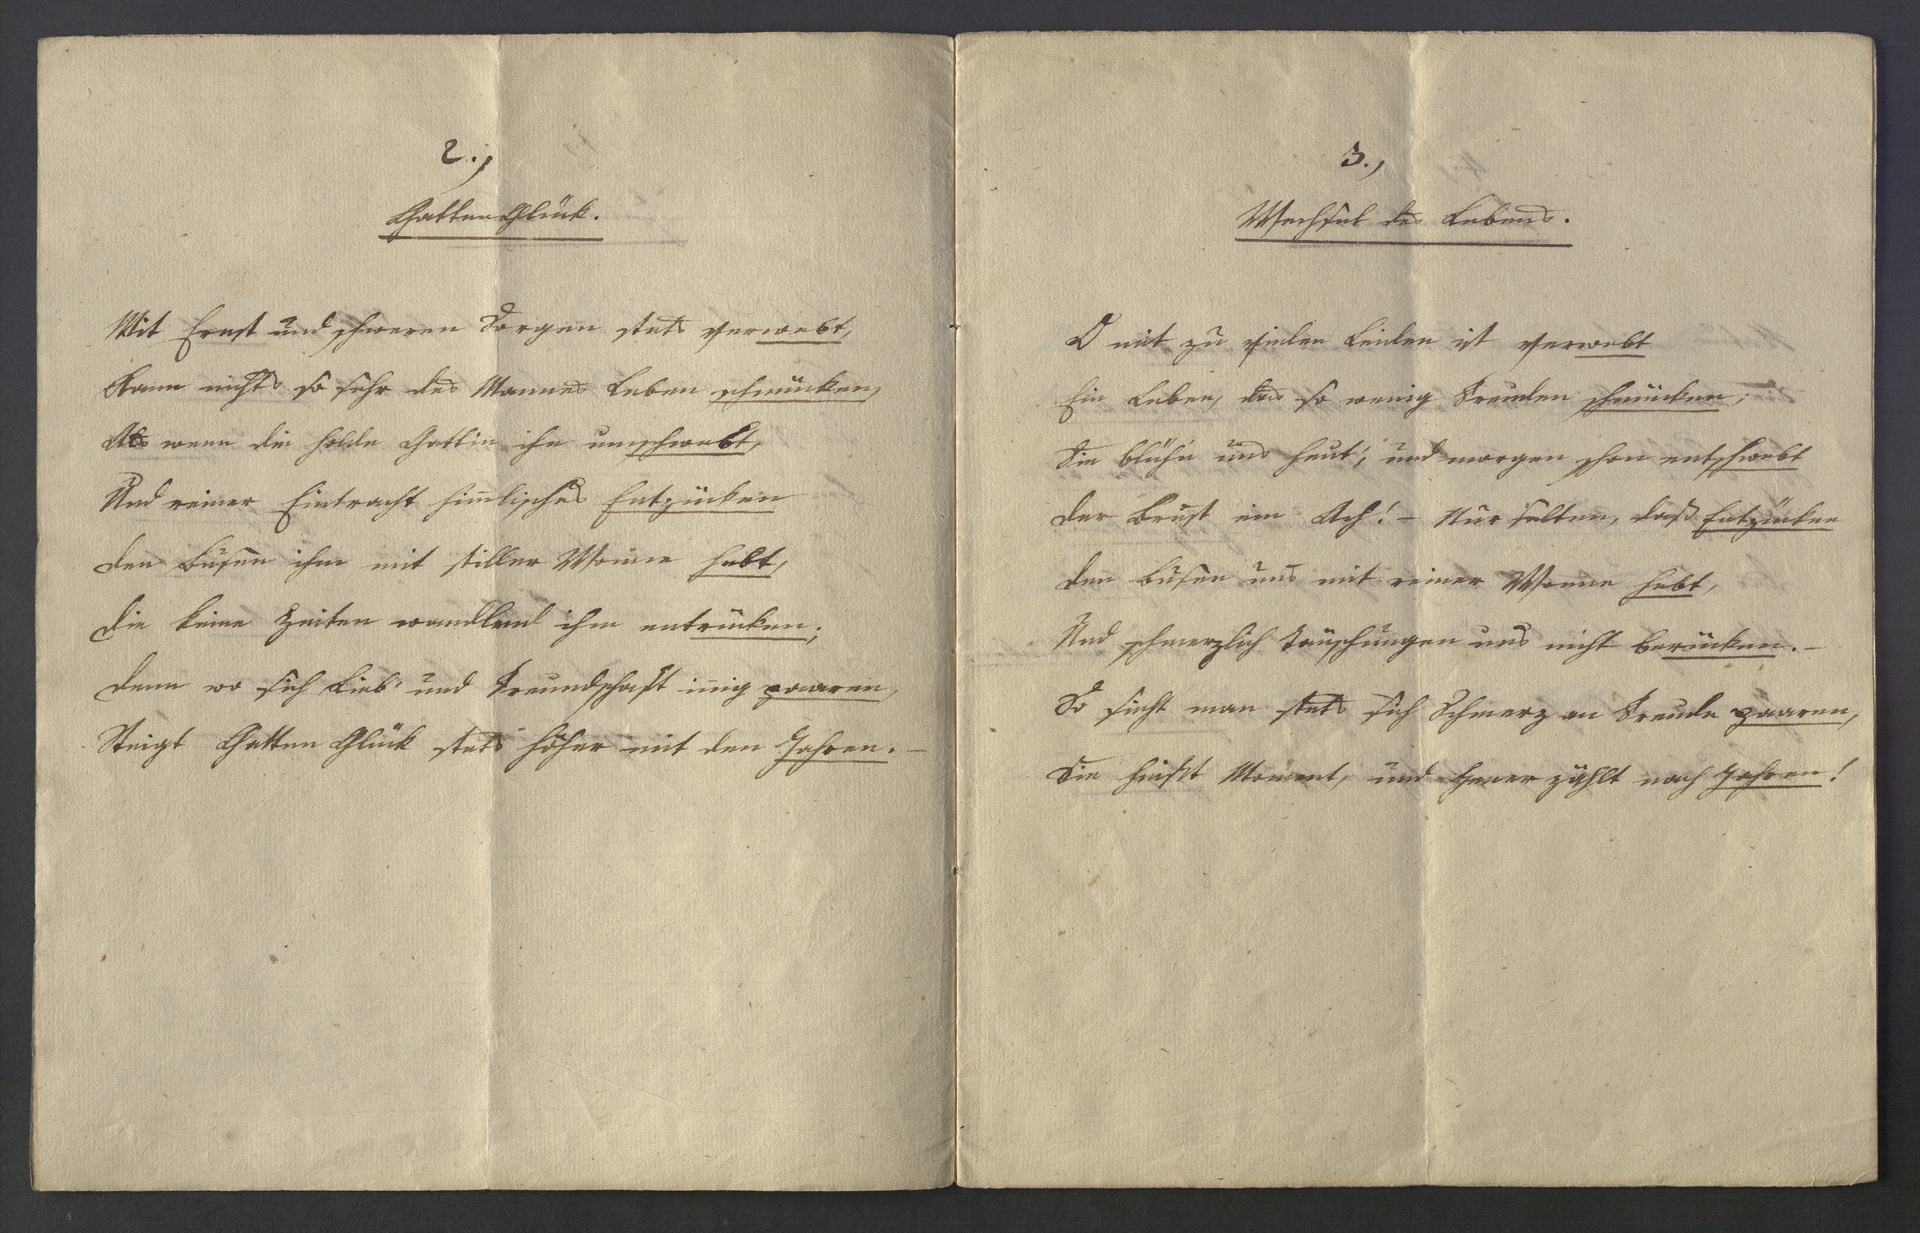 2.,
Gatten Glück.
Mit Ernst und schweren Sorgen stets verwebt,
Kann nichts so sehr des Mannes Leben schmücken,
Als wenn die holde Gattin ihn umschwebt,
Und reiner Eintracht him̅lisches Entzücken
Den Busen ihm mit stiller Wonne hebt,
Die keine Zeiten wandlend ihm entrücken;
Denn wo sich Lieb' und Freundschaft in̅ig paaren,
Steigt Gatten Glück stets höher mit den Jahren. –
3.,
Wechsel des Lebens.
O mit zu vielen Leiden ist verwebt
Ein Leben, das so wenig Freuden schmücken;
Sie blüh'n uns heut', und morgen schon entschwebt
Der Brust ein Ach! – Nur selten, daß Entzücken
Den Busen uns mit reiner Wonne hebt,
Und schmerzlich Täuschungen uns nicht berücken. –
So sieht man stets sich Schmerz an Freude paaren,
Sie heißt Moment, und Jener zählt nach Jahren!